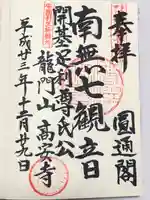 奉拝
圓通閣
南無七観立日
開基足利尊氏公
龍門山 高安寺
平成廿三年十二月廿九日